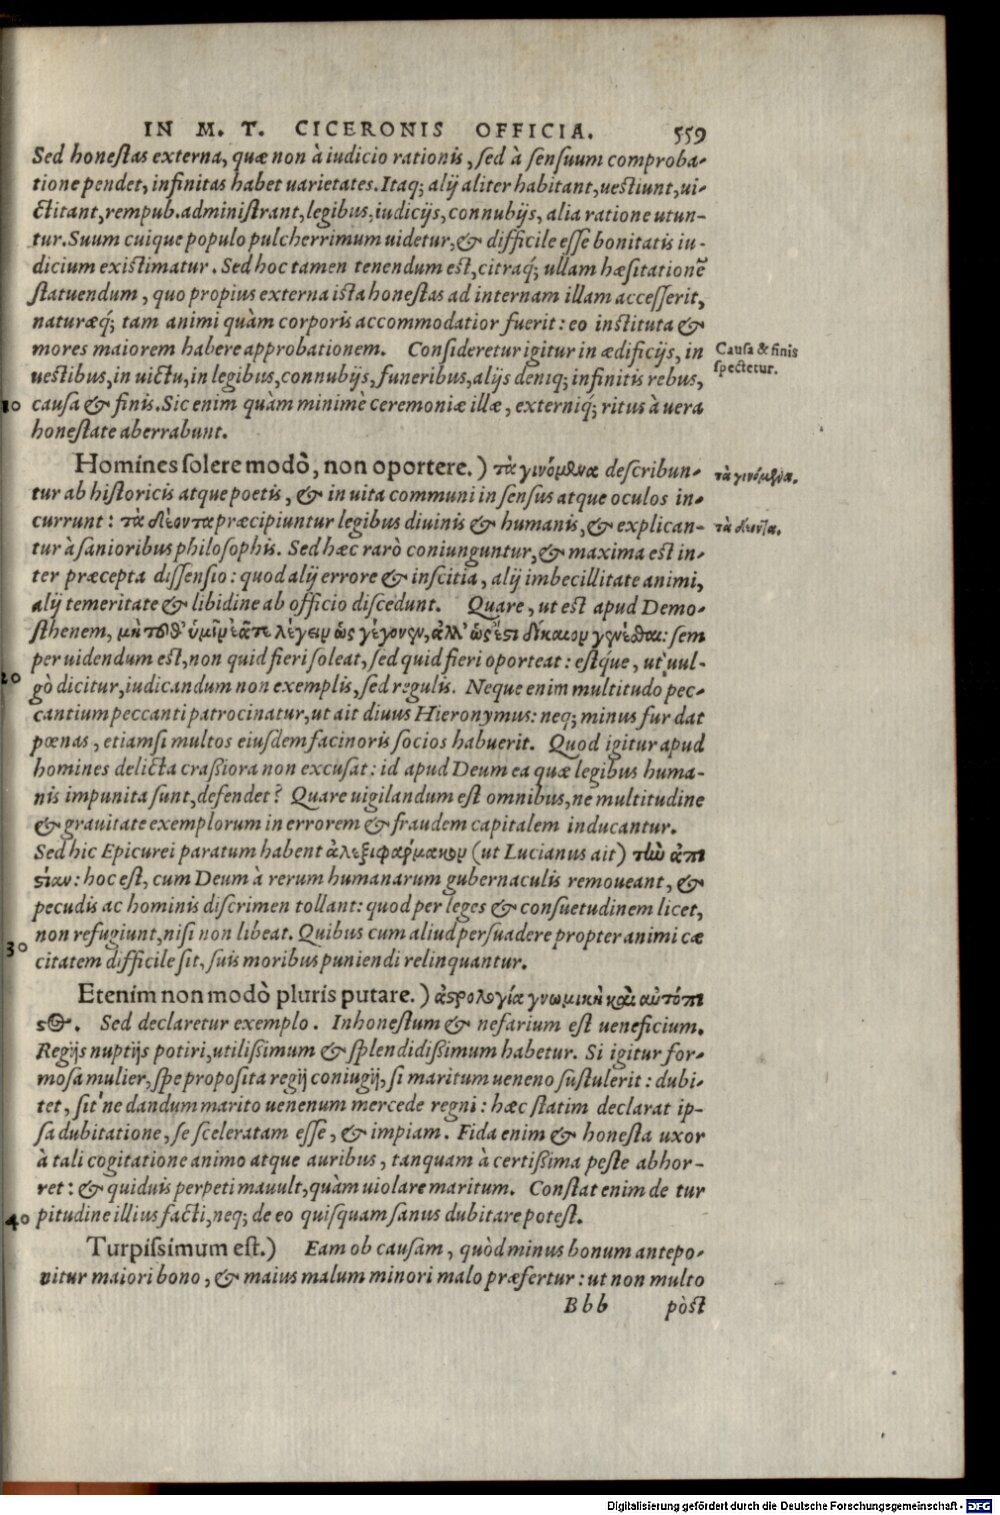 IN M. T. CICERONIS OFFICIA. 559
Sed honestas externa, quæ non à iudicio rationis, sed à sensuum comproba-
tione pendet, infinitas habet uarietates. Itaq; alij aliter habitant, uestiunt, ui-
ctitant, rempub. administrant, legibus, iudicijs, connubijs, alia ratione utun-
tur. Suum cuique populo pulcherrimum uidetur, & difficile esse bonitatis iu-
dicium existimatur. Sed hoc tamen tenendum est, citraq́; ullam hæsitationē
statuendum, quo propius externa ista honestas ad internam illam accesserit,
naturæq́; tam animi quàm corporis accommodatior fuerit: eo instituta &
mores maiorem habere approbationem. Consideretur igitur in ædificijs, in
Causa & finis
spectetur.
uestibus, in uictu, in legibus, connubijs, funeribus, alijs deniq; infinitis rebus,
10 causa & finis. Sic enim quàm minimè ceremoniæ illæ, externiq́; ritus à uera
honestate aberrabunt.
Homines solere modò, non oportere.) τὰ γινόμενα describun-
τὰ γινόμενα.
tur ab historicis atque poetis, & in uita communi in sensus atque oculos in-
currunt: τὰ δέοντα præcipiuntur legibus diuinis & humanis, & explican-
τὰ δέοντα.
tur à sanioribus philosophis. Sed hæc rarò coniunguntur, & maxima est in-
ter præcepta dissensio: quod alij errore & inscitia, alij imbecillitate animi,
alij temeritate & libidine ab officio discedunt. Quare, ut est apud Demo-
sthenem, μὴ τοῦθ' ὑμῖν ἐᾶτε λέγειν ὡς γέγονεν, ἀλλ' ὡς ἔστι δίκαιον γενέσθαι: sem
per uidendum est, non quid fieri soleat, sed quid fieri oporteat: estque, ut uul-
20 gò dicitur, iudicandum non exemplis, sed regulis. Neque enim multitudo pec-
cantium peccanti patrocinatur, ut ait diuus Hieronymus: neq; minus fur dat
pœnas, etiamsi multos eiusdem facinoris socios habuerit. Quod igitur apud
homines delicta craßiora non excusat: id apud Deum ea quæ legibus huma-
nis impunita sunt, defendet? Quare uigilandum est omnibus, ne multitudine
& grauitate exemplorum in errorem & fraudem capitalem inducantur.
Sed hic Epicurei paratum habent ἀλεξιφάρμακον (ut Lucianus ait) τὴν ἀπι
στίαν: hoc est, cum Deum à rerum humanarum gubernaculis remoueant, &
pecudis ac hominis discrimen tollant: quod per leges & consuetudinem licet,
non refugiunt, nisi non libeat. Quibus cum aliud persuadere propter animi cæ
30 citatem difficile sit, suis moribus puniendi relinquantur.
Etenim non modò pluris putare.) ἀστρολογία γνωμικὴ καὶ αὐτόπι
στος. Sed declaretur exemplo. Inhonestum & nefarium est ueneficium.
Regijs nuptijs potiri, utilißimum & splendidißimum habetur. Si igitur for-
mosa mulier, spe proposita regij coniugij, si maritum ueneno sustulerit: dubi-
tet, sit'ne dandum marito uenenum mercede regni: hæc statim declarat ip-
sa dubitatione, se sceleratam esse, & impiam. Fida enim & honesta uxor
à tali cogitatione animo atque auribus, tanquam à certißima peste abhor-
ret: & quiduis perpeti mauult, quàm uiolare maritum. Constat enim de tur
40 pitudine illius facti, neq; de eo quisquam sanus dubitare potest.
Turpissimum est.) Eam ob causam, quòd minus bonum antepo-
nitur maiori bono, & maius malum minori malo præfertur: ut non multo
Bbb pòst
Digitalisierung gefördert durch die Deutsche Forschungsgemeinschaft - DFG